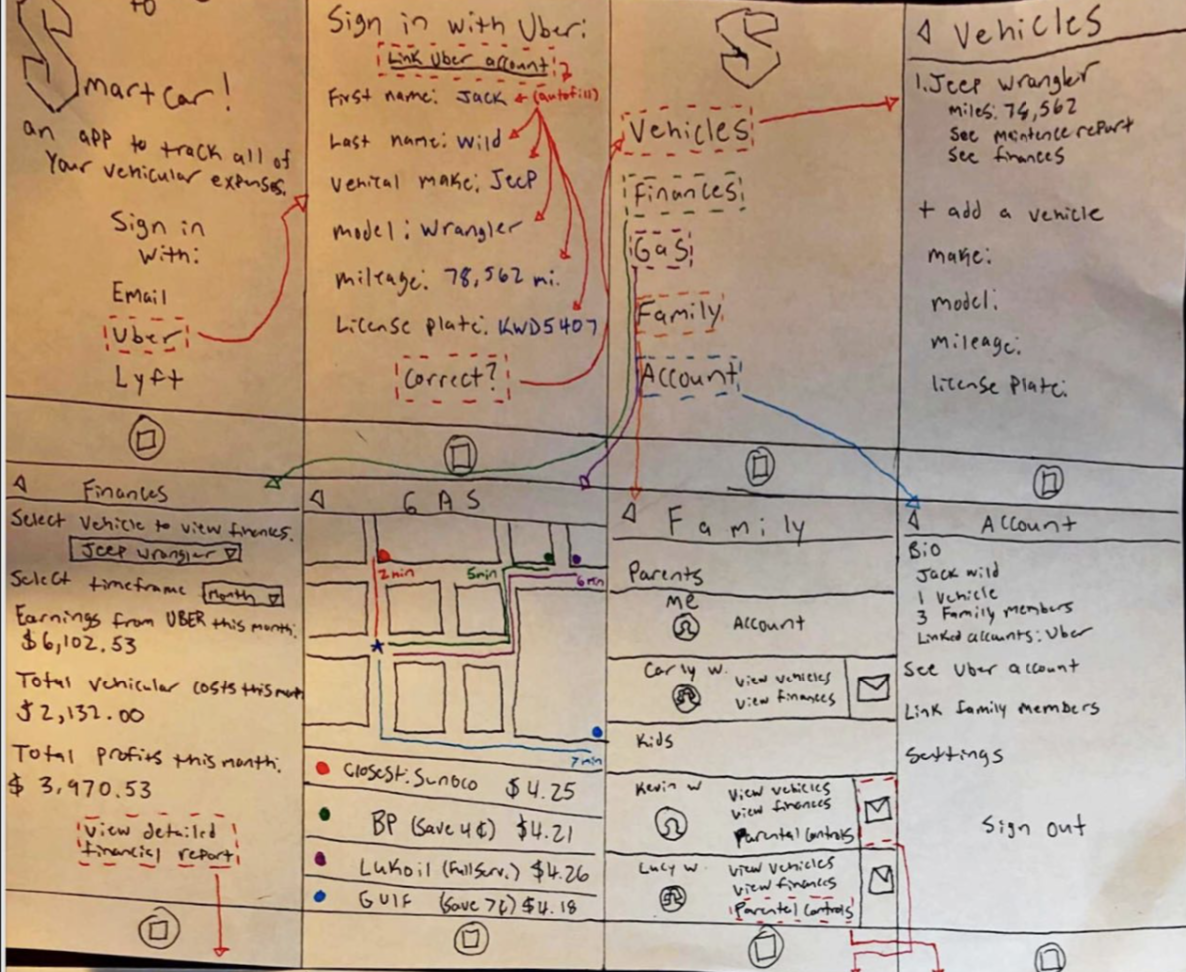 to
Smartcar!
an app to track all of
Your vehicular expenses.
Sign in
with:
Email
Uber
Lyft
Sign in with Uber:
Link Uber account
First name: Jack (autofill)
Last name: Wild
vehical make: Jeep
model: Wrangler
mileage: 78,562 mi.
License plate: KWD5407
Correct?
S
Vehicles
Finances
Gas
Family
Account
Vehicles
1. Jeep Wrangler
miles: 78,562
See maintence report
See finances
+ add a vehicle
make:
model:
mileage:
license plate:
Finances
Select vehicle to view finances.
Jeep Wrangler
Select timeframe Month
Earnings from UBER this month:
$6,102.53
Total vehicular costs this month
$2,132.00
Total profits this month:
$ 3,970.53
View detailed
financial report
GAS
2min
5min
6min
7min
Closest: Sunoco $4.25
BP (Save 4¢) $4.21
Lukoil (Full Serv.) $4.26
Gulf (Save 7¢) $4.18
Family
Parents
Me
Account
Carly W.
View vehicles
View finances
Kids
Kevin W
View vehicles
View finances
Parental Controls
Lucy W.
View vehicles
View finances
Parental Controls
Account
Bio
Jack Wild
1 Vehicle
3 Family members
Linked accounts: Uber
See Uber account
Link family members
Settings
Sign out